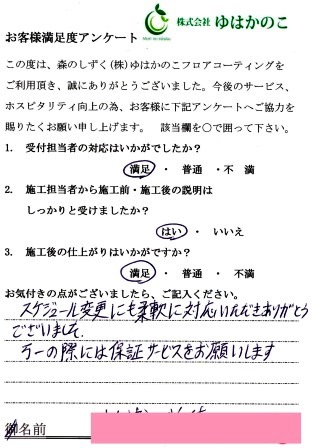 株式会社 ゆはかのこ
お客様満足度アンケート
この度は、森のしずく(株)ゆはかのこフロアコーティングを
ご利用頂き、誠にありがとうございました。今後のサービス、
ホスピタリティ向上の為、お客様に下記アンケートへご協力を
賜りたくお願い申し上げます。 該当欄を○で囲って下さい。
1. 受付担当者の対応はいかがでしたか?
満足 ・ 普通 ・不 満
2. 施工担当者から施工前・施工後の説明は
しっかりと受けましたか?
はい ・ いいえ
3. 施工後の仕上がりはいかがですか?
満足 ・ 普通 ・ 不 満
お気付きの点がございましたら、ご記入ください。
スケジュール変更にも柔軟に対応いただきありがとう
ございました。
万一の際には保証サービスをお願いします
御名前